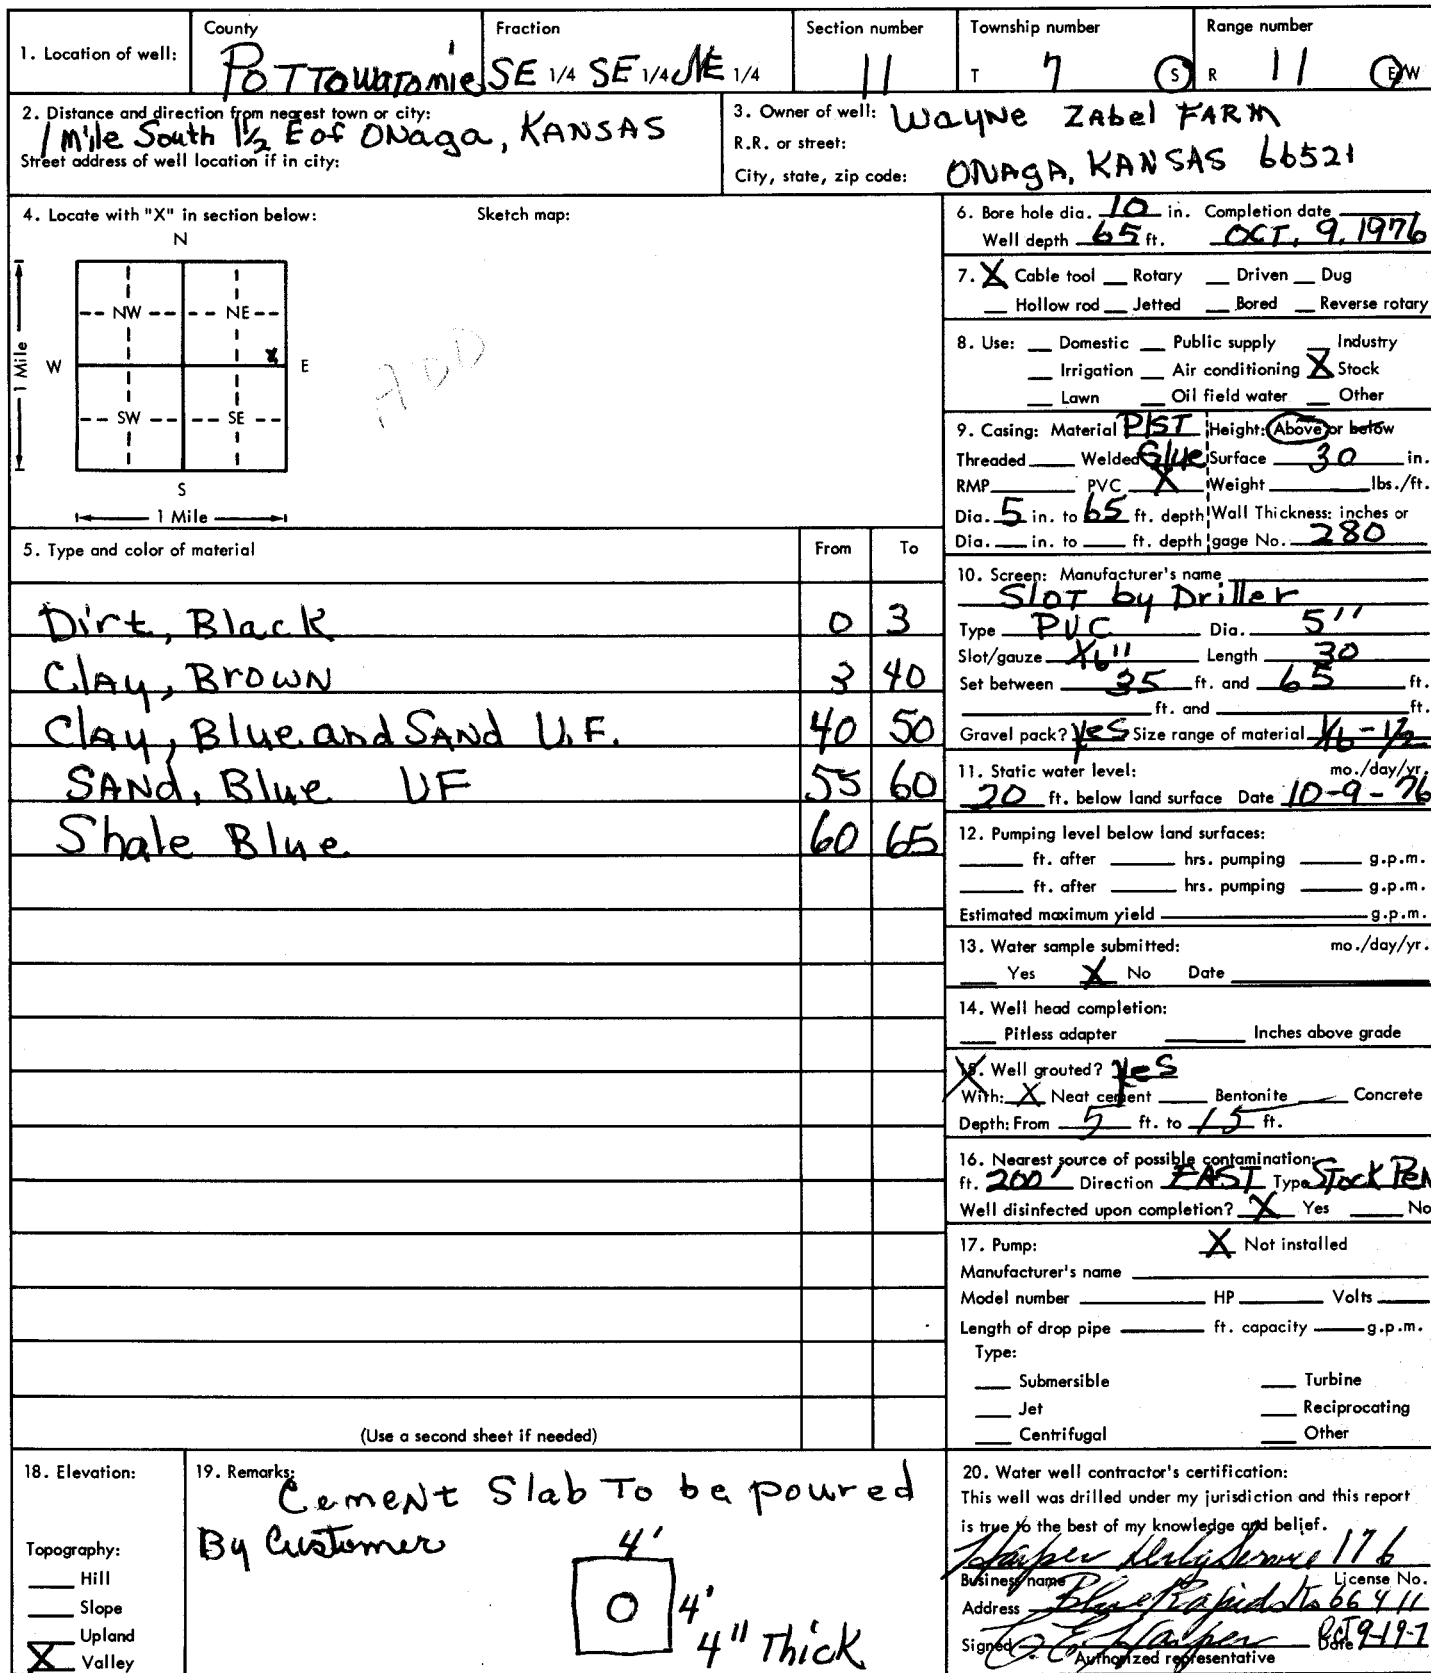 1. Location of well:
County
Pottowatomie
Fraction
SE 1/4 SE 1/4 NE 1/4
Section number
11
Township number
T 7 S
Range number
R 11 E/W
2. Distance and direction from nearest town or city:
1 mile South 1½ E of ONaga, KANSAS
Street address of well location if in city:
3. Owner of well: WAYNE ZAbel FARM
R.R. or street:
City, state, zip code: ONAGA, KANSAS 66521
4. Locate with "X" in section below:
Sketch map:
N
NW NE
X
W E
1 Mile
SW SE
S
1 Mile
ADD
5. Type and color of material From To
Dirt, Black 0 3
Clay, Brown 3 40
Clay, Blue and SAND U.F. 40 50
SANd, Blue UF 55 60
Shale Blue 60 65
(Use a second sheet if needed)
6. Bore hole dia. 10 in. Completion date
Well depth 65 ft. OCT. 9, 1976
7. X Cable tool Rotary Driven Dug
Hollow rod Jetted Bored Reverse rotary
8. Use: Domestic Public supply Industry
Irrigation Air conditioning X Stock
Lawn Oil field water Other
9. Casing: Material PlST Height: Above or below
Threaded Welded Glue Surface 30 in.
RMP PVC X Weight lbs./ft.
Dia. 5 in. to 65 ft. depth Wall Thickness: inches or
Dia. in. to ft. depth gage No. 280
10. Screen: Manufacturer's name
Slot by Driller
Type PVC Dia. 5"
Slot/gauze 1/16" Length 30
Set between 35 ft. and 65 ft.
ft. and ft.
Gravel pack? yes Size range of material 1/16 - 1/2
11. Static water level: mo./day/yr.
20 ft. below land surface Date 10-9-76
12. Pumping level below land surfaces:
ft. after hrs. pumping g.p.m.
ft. after hrs. pumping g.p.m.
Estimated maximum yield g.p.m.
13. Water sample submitted: mo./day/yr.
Yes X No Date
14. Well head completion:
Pitless adapter Inches above grade
15. Well grouted? yes
With: X Neat cement Bentonite Concrete
Depth: From 5 ft. to 15 ft.
16. Nearest source of possible contamination:
ft. 200' Direction EAST Type Stock Pen
Well disinfected upon completion? X Yes No
17. Pump: X Not installed
Manufacturer's name
Model number HP Volts
Length of drop pipe ft. capacity g.p.m.
Type:
Submersible Turbine
Jet Reciprocating
Centrifugal Other
18. Elevation:
Topography:
Hill
Slope
Upland
X Valley
19. Remarks:
Cement Slab To be poured
By Customer
4'
4'
4" Thick
20. Water well contractor's certification:
This well was drilled under my jurisdiction and this report
is true to the best of my knowledge and belief.
Harper Service 176
Business name License No.
Address Blue Rapids Ks 66411
Signed C. E. Harper Date Oct 9-19-7
Authorized representative